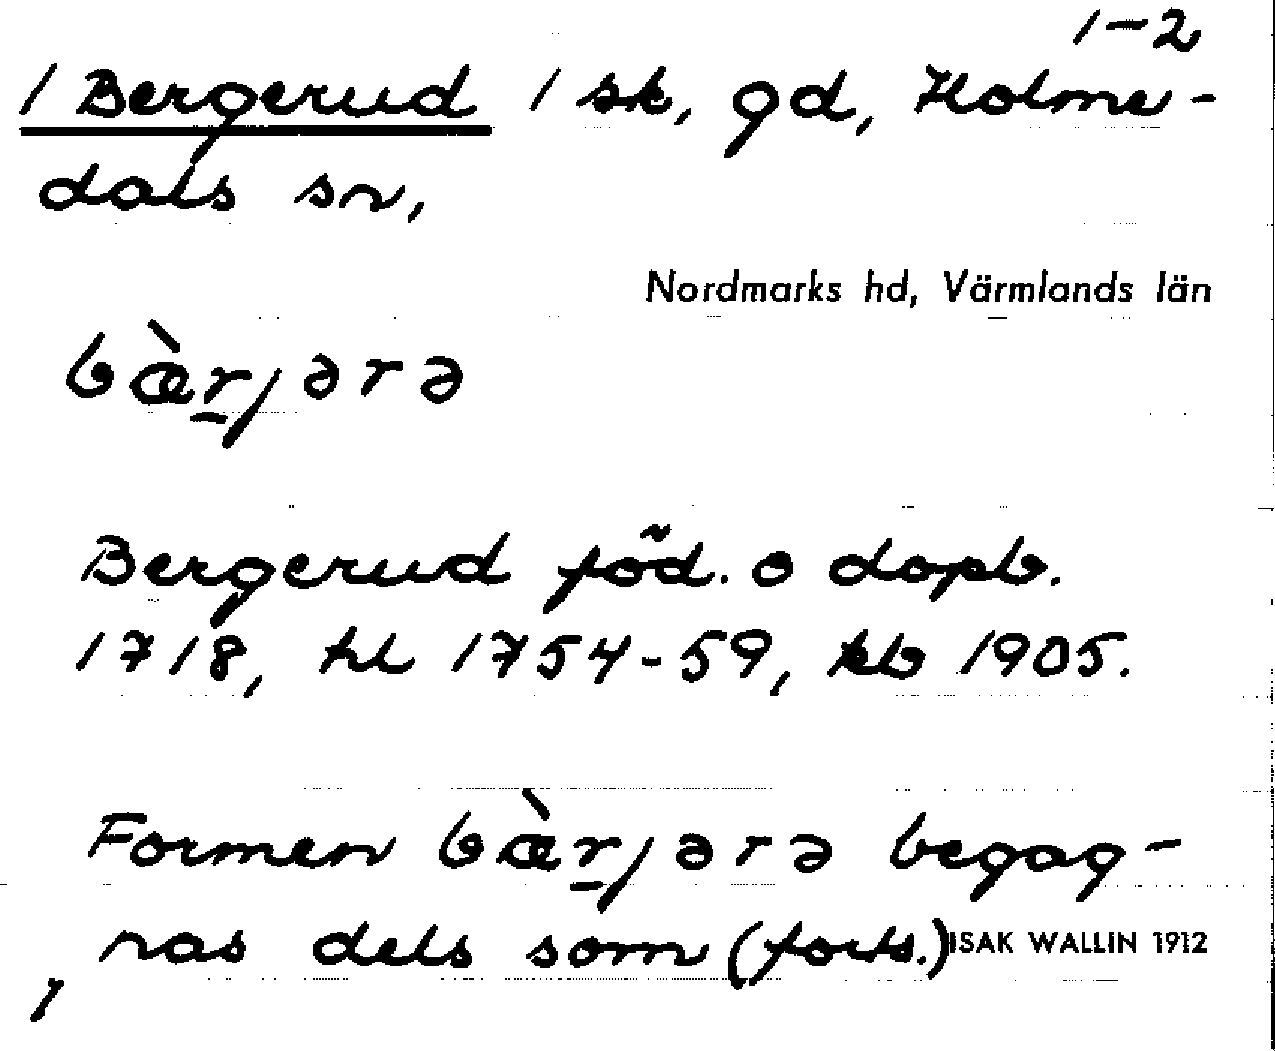 1-2
/ Bergerud / sk, gd, Holme-
dals sn,
Nordmarks hd, Värmlands län
bæ̀r̠jərə
Bergerud föd. o dopb.
1718, hl 1754-59, kb 1905.
Formen bæ̀r̠jərə begag-
nas dels som (forts.) ISAK WALLIN 1912